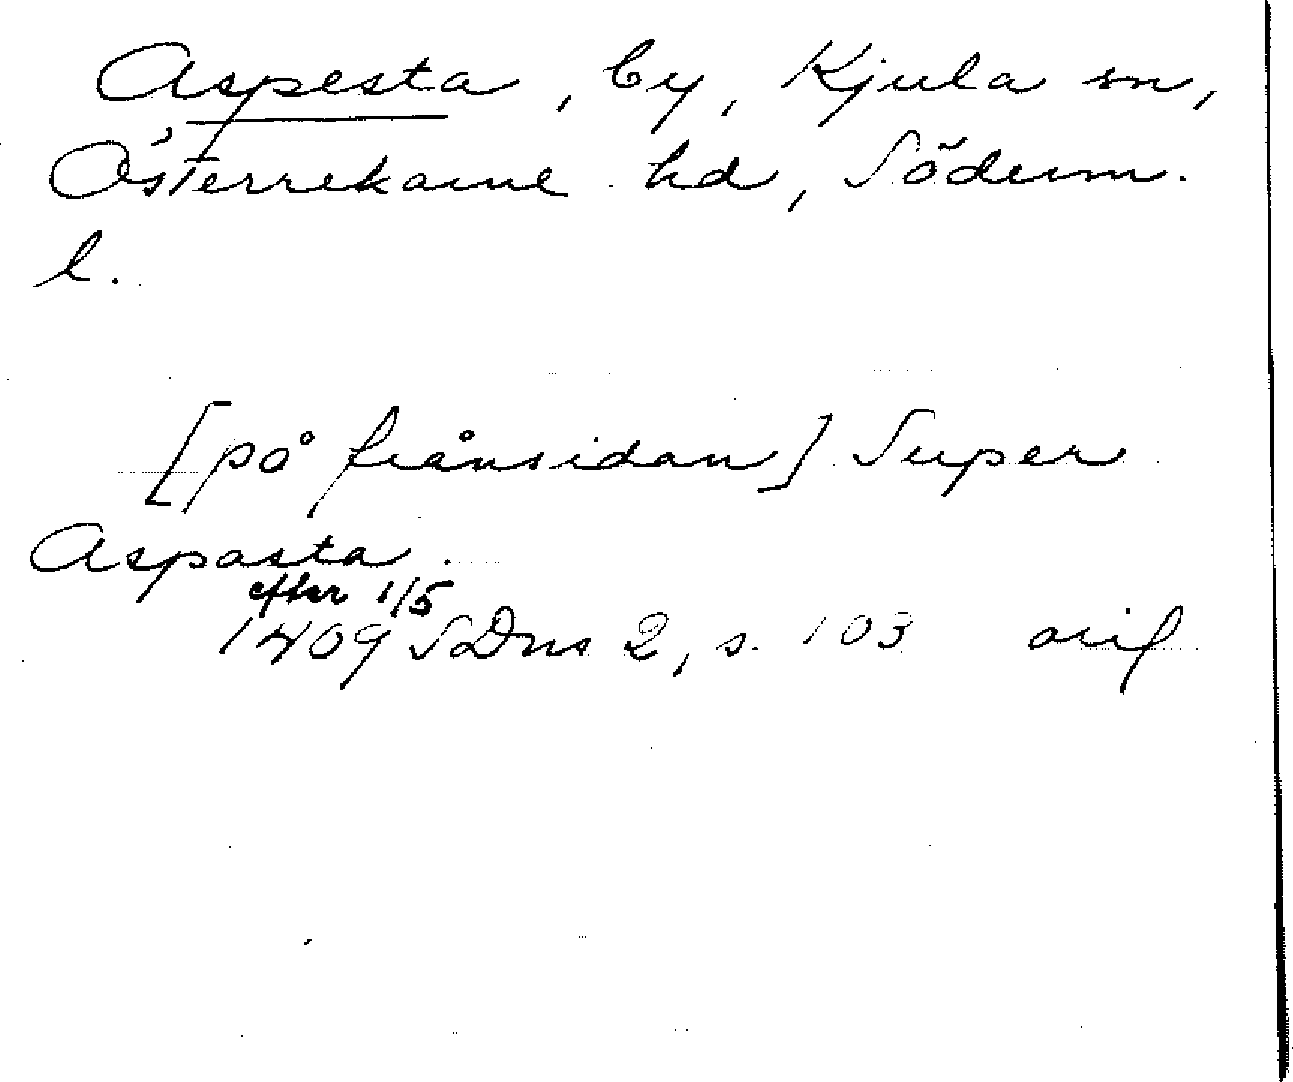 Aspesta, by, Kjula sn,
Österrekarne hd, Söderm.
l.
[på frånsidan] Super
Aspasta.
efter 1/5
1409 SDns 2, s. 103 orig